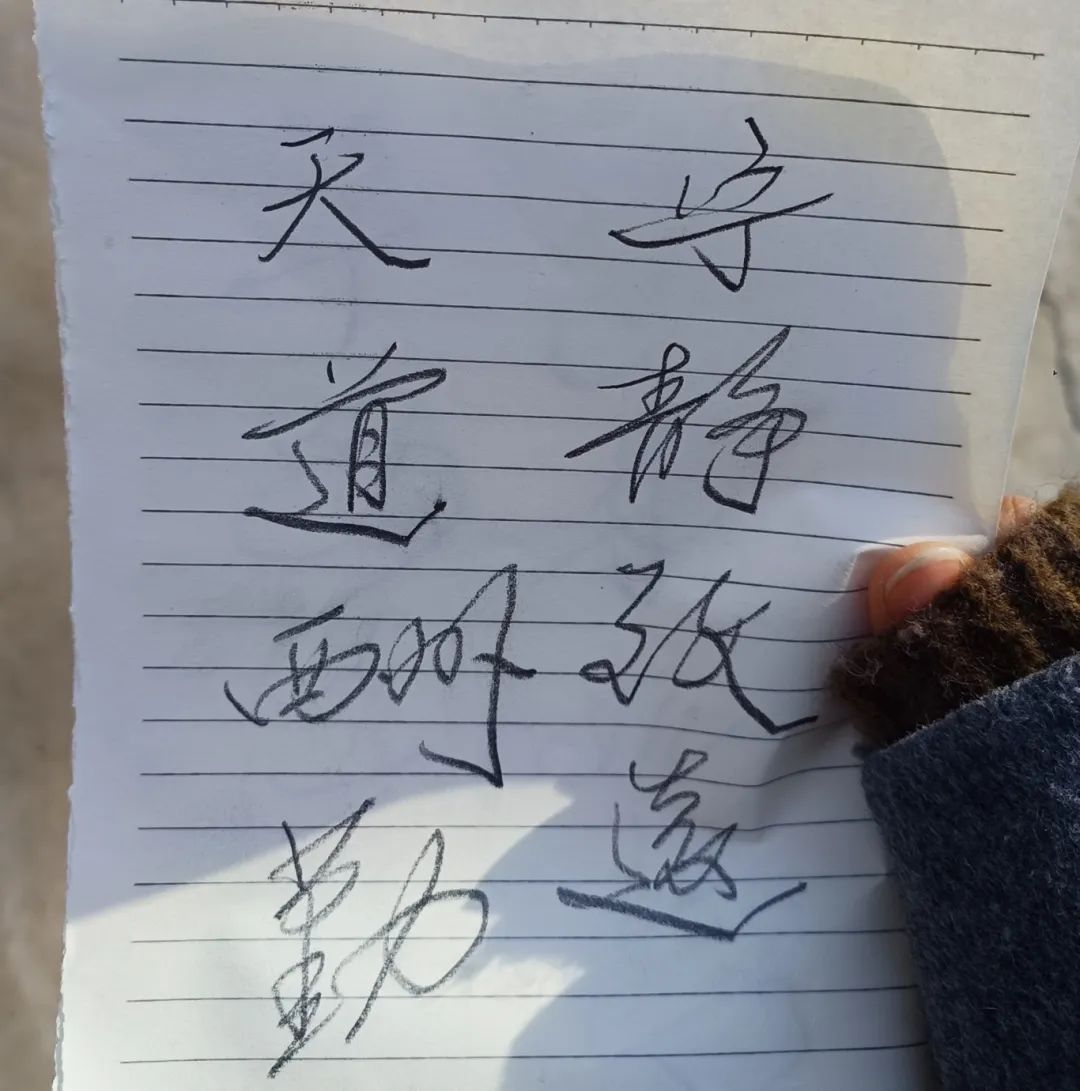 宁静致遠
天道酬勤